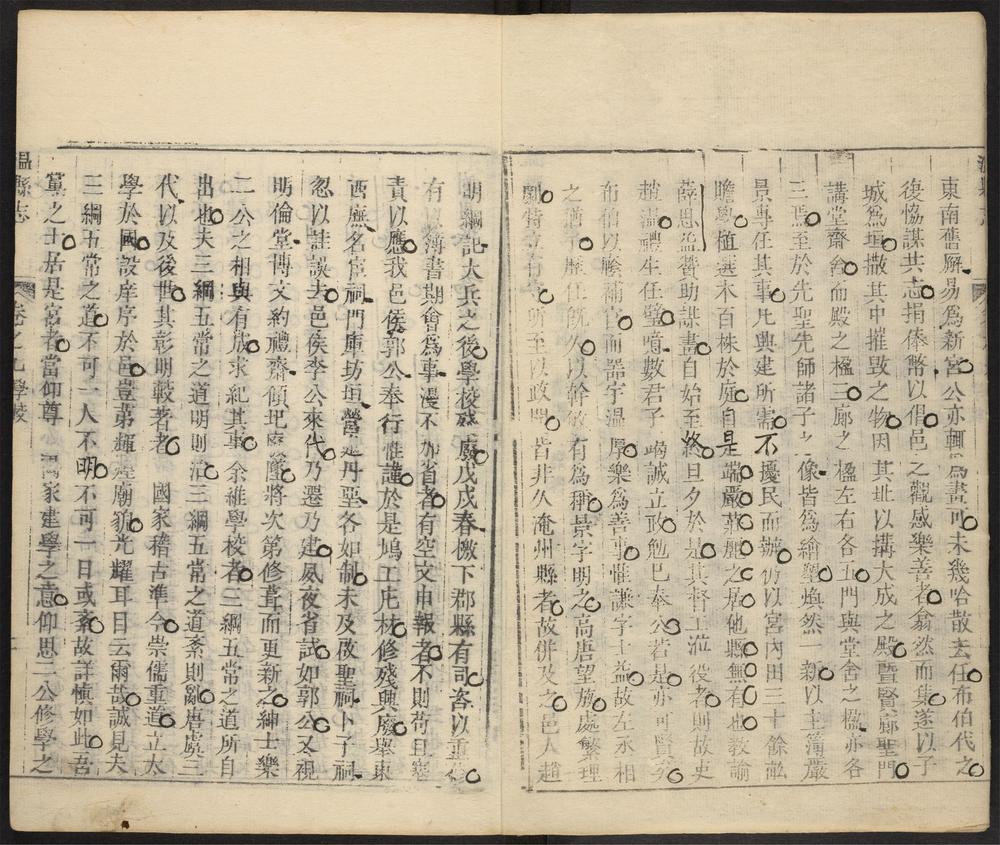 東南舊廨易爲新宮公亦輒爲畫可未幾哈散去任布伯代之
復恊謀共志捐俸幣以倡邑之觀感樂善者翕然而集遂以子
城爲垣撒其中摧毀之物因其址以搆大成之殿曁賢廊聖門
講堂齋舍而殿之楹三廊之楹左右各五門與堂舍之楹亦各
三焉至於先聖先師諸子之像皆爲繪塑煥然一新以主簿嚴
景專任其事凡興建所需不擾民而辦仍以宮內田三十餘畝
贍學植選木百株於庭自是端嚴 麗之居他縣無有也教諭
薛思孟營助謀畫自始至終旦夕於是其督工涖役者則故史
趙瀟禮生任瑩噫數君子竭誠立政勉已奉公若是亦可賢矣
布伯以廕補官而器宇温厚樂爲善事惟謙字士益故左丞相
之 歷任旣久以幹敏有爲稱景字明之高唐望族處繁理
劇特立有 所至以政聞皆非久淹州縣者故併及之邑人趙
明綱記大兵之後學校 廢戊戌春檄下郡縣有司咨以重
有 以簿書期會爲事漫不加省者有空文申報者不則苟且塞
責以應我邑侯郭公奉行惟謹於是鳩工庀材修殘興廢舉東
西廡名宦祠門庫坊垣營造丹堊各如制未及啟聖祠卜子祠
忽以詿誤去邑侯李公來代乃遷乃建夙夜省試如郭公又視
明倫堂博文約禮齋傾圮 隆將次第修葺而更新之紳士樂
二公之相與有成求紀其事余維學校者三綱五常之道所自
出也夫三綱五常之道明則治三綱五常之道紊則亂唐虞三
代以及後世其彰明較著者 國家稽古準今崇儒重道立太
學於國設庠序於邑豈第輝煌廟貌光耀耳目云爾哉誠見夫
三綱五常之道不可一人不明不可一日或紊故詳愼如此吾
黨之士居是宮者當仰尊 國家建學之意仰思二公修學之
温縣志
卷之九學校